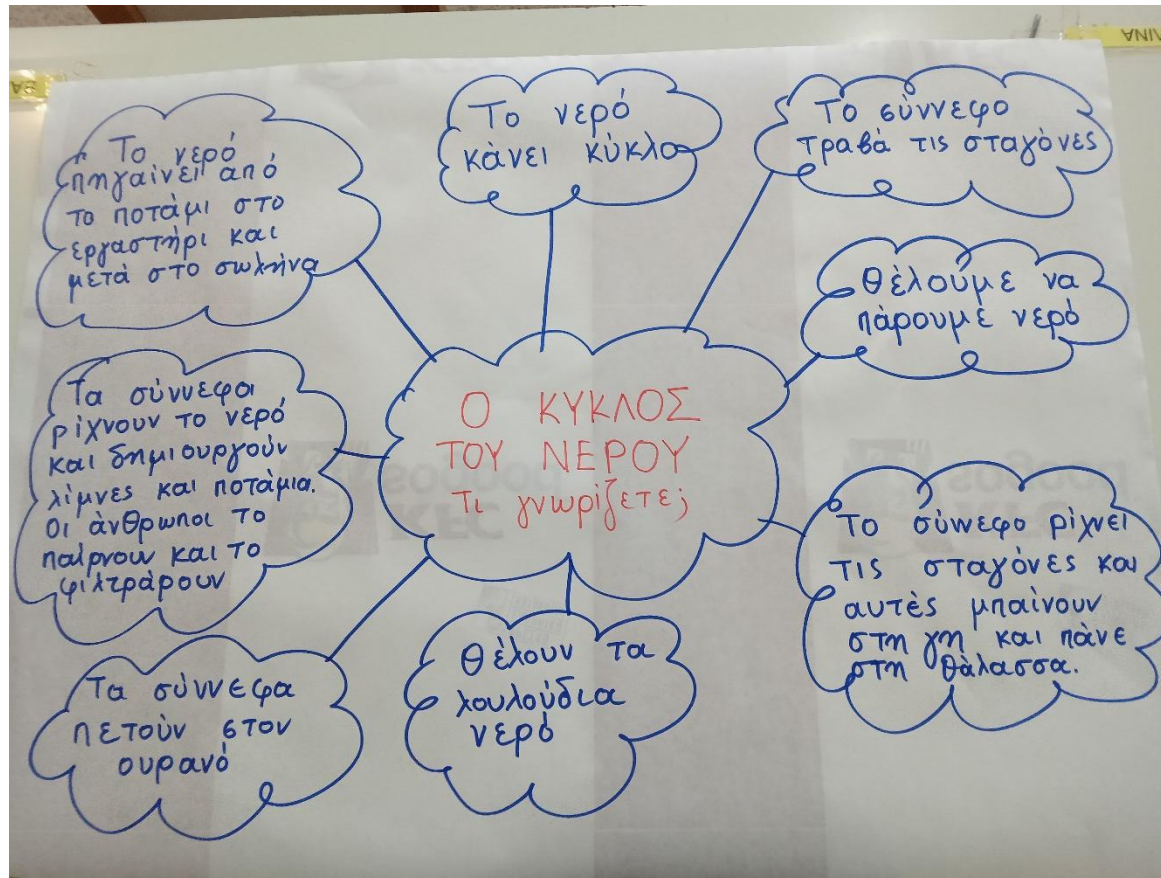 Το νερό
πηγαίνει από
το ποτάμι στο
εργαστήρι και
μετά στο σωλήνα
Το νερό
κάνει κύκλο
Το σύννεφο
τραβά τις σταγόνες
Θέλουμε να
πάρουμε νερό
Τα σύννεφα
ρίχνουν το νερό
και δημιουργούν
λίμνες και ποτάμια.
Οι άνθρωποι το
παίρνουν και το
φιλτράρουν
Ο ΚΥΚΛΟΣ
ΤΟΥ ΝΕΡΟΥ
Τι γνωρίζετε;
Το σύννεφο ρίχνει
τις σταγόνες και
αυτές μπαίνουν
στη γη και πάνε
στη θάλασσα.
Τα σύννεφα
πετούν στον
ουρανό
Θέλουν τα
λουλούδια
νερό